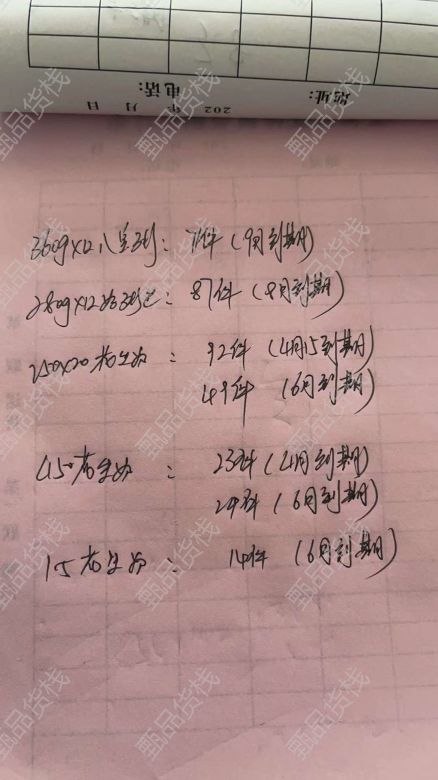 地址:
电话:
202 年 月 日
360g×12八宝粥: 71件 (9月到期)
280g×12 : 87件 (8月到期)
250×20花生奶 : 92件 (4月15到期)
49件 (6月到期)
450花生奶 : 23件 (4月到期)
24件 (6月到期)
15花生奶 : 14件 (6月到期)
甄品货栈